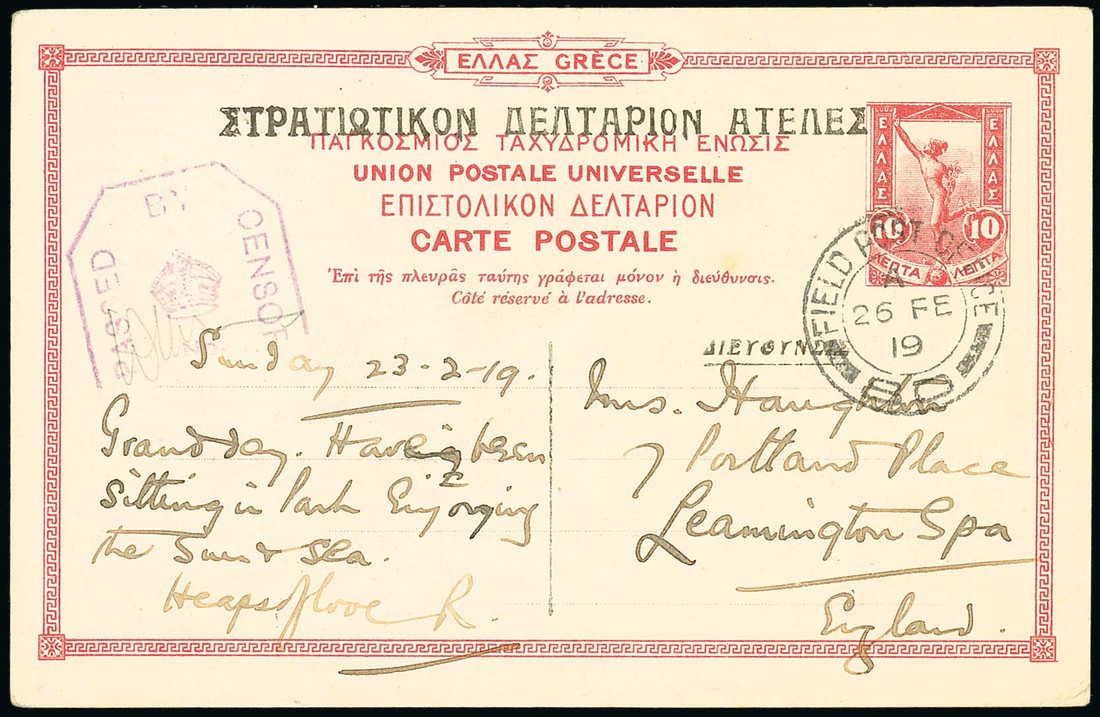 ΕΛΛΑΣ GRÈCE
ΣΤΡΑΤΙΩΤΙΚΟΝ ΔΕΛΤΑΡΙΟΝ ΑΤΕΛΕΣ
ΠΑΓΚΟΣΜΙΟΣ ΤΑΧΥΔΡΟΜΙΚΗ ΕΝΩΣΙΣ
UNION POSTALE UNIVERSELLE
ΕΠΙΣΤΟΛΙΚΟΝ ΔΕΛΤΑΡΙΟΝ
CARTE POSTALE
Ἐπὶ τῆς πλευρᾶς ταύτης γράφεται μόνον ἡ διεύθυνσις.
Côté réservé à l'adresse.
ΕΛΛΑΣ
ΕΛΛΑΣ
10 10
ΛΕΠΤΑ ΛΕΠΤΑ
PASSED BY CENSOR
FIELD POST OFFICE
A
26 FE
19
ΔΙΕΥΘΥΝΣΙΣ
Sunday 23-2-19.
Grand day. Have been
sitting in Park Enjoying
the Sun & Sea.
Heaps of love R.
Mrs.
7 Portland Place
Leamington Spa
England.